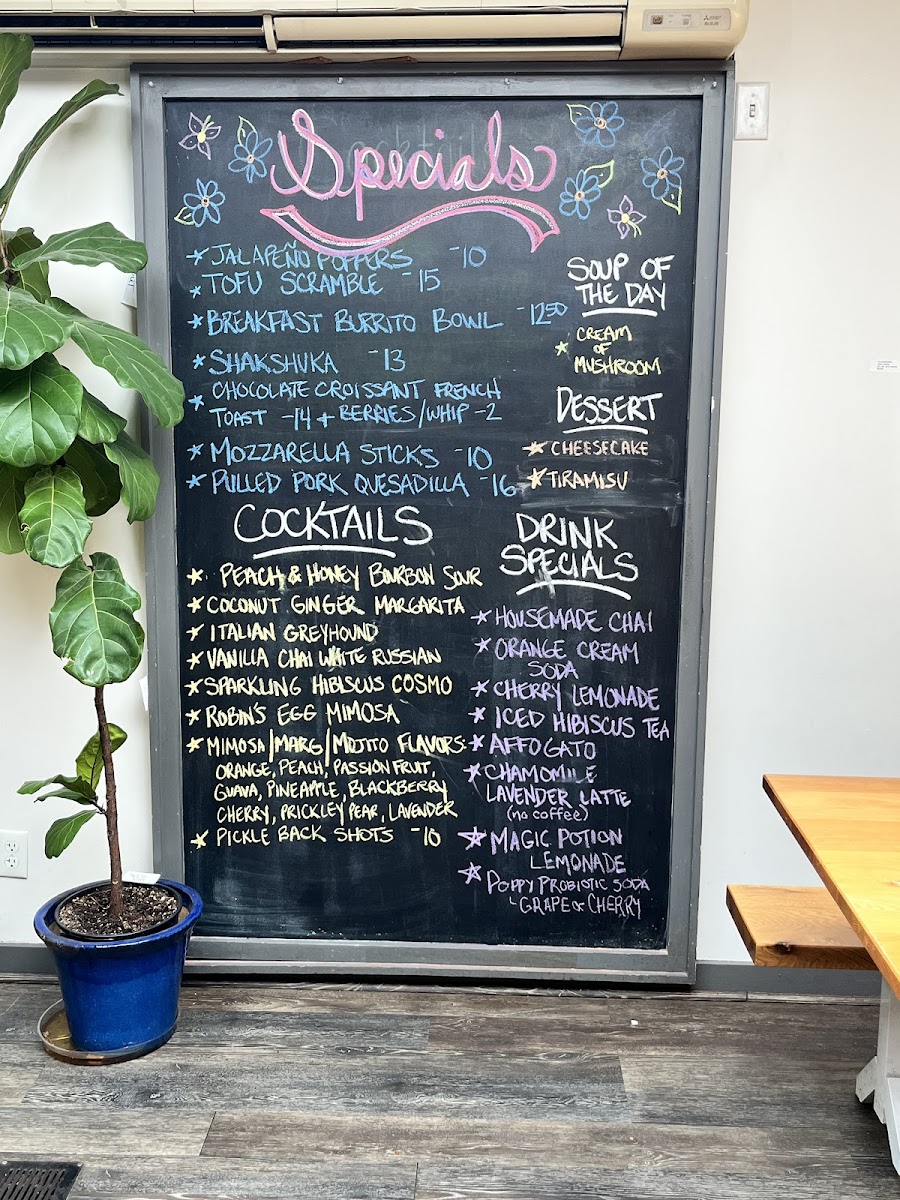 Specials
* JALAPEÑO POPPERS -10
* TOFU SCRAMBLE -15
* BREAKFAST BURRITO BOWL -12⁵⁰
* SHAKSHUKA -13
* CHOCOLATE CROISSANT FRENCH
TOAST -14 + BERRIES/WHIP -2
* MOZZARELLA STICKS -10
* PULLED PORK QUESADILLA -16
SOUP OF
THE DAY
* CREAM
OF
MUSHROOM
DESSERT
* CHEESECAKE
* TIRAMISU
COCKTAILS
* PEACH & HONEY BOURBON SOUR
* COCONUT GINGER MARGARITA
* ITALIAN GREYHOUND
* VANILLA CHAI WHITE RUSSIAN
* SPARKLING HIBISCUS COSMO
* ROBIN'S EGG MIMOSA
* MIMOSA/MARG/MOJITO FLAVORS:
ORANGE, PEACH, PASSION FRUIT,
GUAVA, PINEAPPLE, BLACKBERRY
CHERRY, PRICKLEY PEAR, LAVENDER
* PICKLE BACK SHOTS -10
DRINK
SPECIALS
* HOUSEMADE CHAI
* ORANGE CREAM
SODA
* CHERRY LEMONADE
* ICED HIBISCUS TEA
* AFFOGATO
* CHAMOMILE
LAVENDER LATTE
(no coffee)
* MAGIC POTION
LEMONADE
* POPPY PROBIOTIC SODA
- GRAPE or CHERRY